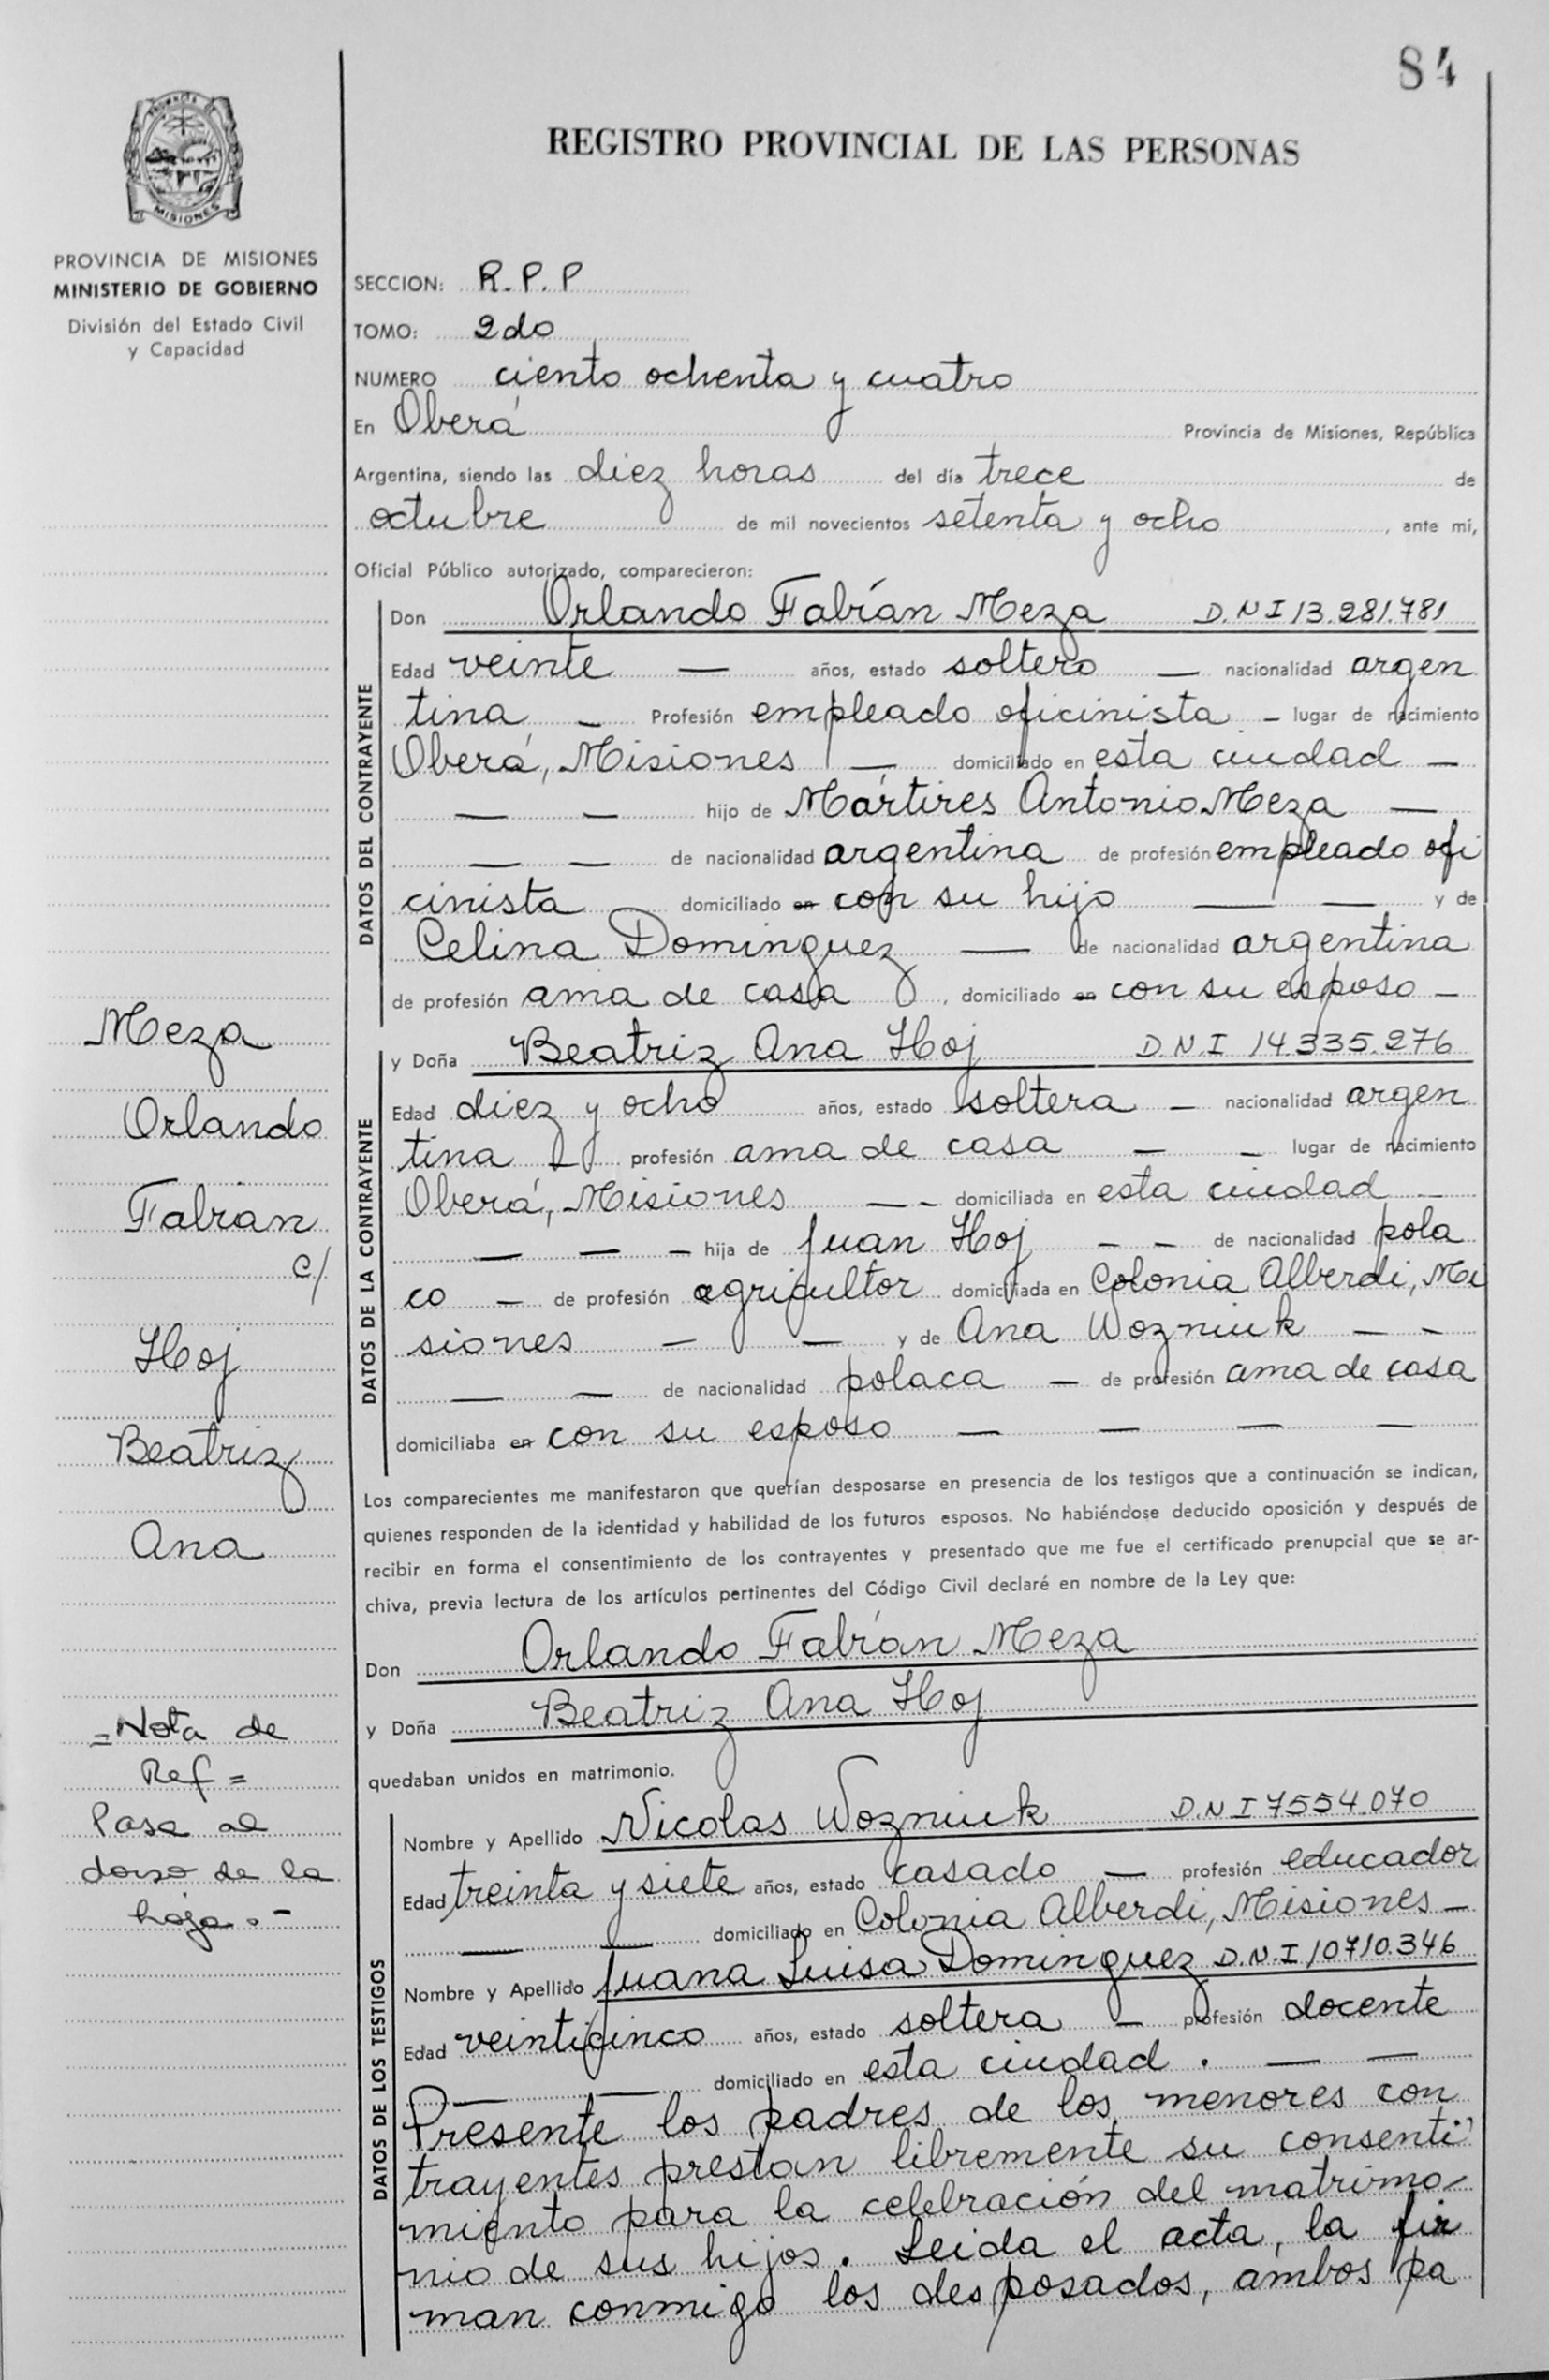 84
REGISTRO PROVINCIAL DE LAS PERSONAS
PROVINCIA DE
MISIONES
PROVINCIA DE MISIONES
MINISTERIO DE GOBIERNO
División del Estado Civil
y Capacidad
SECCION: R.P.P
TOMO: 2do
NUMERO ciento ochenta y cuatro
En Oberá Provincia de Misiones, República
Argentina, siendo las diez horas del día trece de
octubre de mil novecientos setenta y ocho, ante mí,
Oficial Público autorizado, comparecieron:
DATOS DEL CONTRAYENTE
Don Orlando Fabían Meza D.N I 13.281.781
Edad veinte — años, estado soltero — nacionalidad argen
tina — Profesión empleado oficinista — lugar de nacimiento
Oberá, Misiones — domiciliado en esta ciudad —
— — hijo de Mártires Antonio Meza —
— — de nacionalidad argentina de profesión empleado ofi
cinista domiciliado en con su hijo — — y de
Celina Dominguez — de nacionalidad argentina
de profesión ama de casa, domiciliado en con su esposo —
DATOS DE LA CONTRAYENTE
y Doña Beatriz Ana Hoj D.N.I 14335.276
Edad diez y ocho años, estado soltera — nacionalidad argen
tina — profesión ama de casa — — lugar de nacimiento
Oberá, Misiones — — domiciliada en esta ciudad —
— — — hija de Juan Hoj — — de nacionalidad pola
co — de profesión agricultor domiciliada en Colonia Alberdi, Mi
siones — — y de Ana Wozniuk — —
— — de nacionalidad polaca — de profesión ama de casa
domiciliaba en con su esposo — — — —
Los comparecientes me manifestaron que querían desposarse en presencia de los testigos que a continuación se indican,
quienes responden de la identidad y habilidad de los futuros esposos. No habiéndose deducido oposición y después de
recibir en forma el consentimiento de los contrayentes y presentado que me fue el certificado prenupcial que se ar-
chiva, previa lectura de los artículos pertinentes del Código Civil declaré en nombre de la Ley que:
Don Orlando Fabían Meza
y Doña Beatriz Ana Hoj
quedaban unidos en matrimonio.
DATOS DE LOS TESTIGOS
Nombre y Apellido Nicolas Wozniuk D.N I 7554.070
Edad treinta y siete años, estado casado — profesión educador
— — domiciliado en Colonia Alberdi, Misiones —
Nombre y Apellido Juana Luisa Dominguez D.N.I 10710.346
Edad veinticinco años, estado soltera — profesión docente
— — domiciliado en esta ciudad. — —
Presente los padres de los menores con
trayentes prestan libremente su consenti
miento para la celebración del matrimo-
nio de sus hijos. Leida el acta, la fir
man conmigo los desposados, ambos pa
Meza
Orlando
Fabian
c/
Hoj
Beatriz
Ana
=Nota de
Ref=
Pasa al
dorso de la
hoja.-